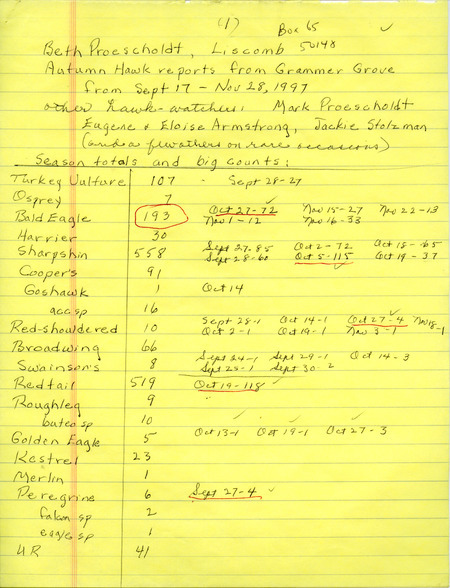 (1) Box 65
Beth Proescholdt, Liscomb 50148
Autumn Hawk reports from Grammer Grove
from Sept 17 - Nov 28, 1997
other hawk-watchers: Mark Proescholdt
Eugene & Eloise Armstrong, Jackie Stolzman
(and a few others on rare occasions)
Season totals and big counts:
Turkey Vulture 107 Sept 28-27
Osprey 7
Bald Eagle 193 Oct 27-72 Nov 15-27 Nov 22-13
Nov 1-12 Nov 16-33
Harrier 30
Sharpshin 558 Sept 27-85 Oct 2-72 Oct 18-65
Sept 28-60 Oct 5-115 Oct 19-37
Cooper's 91
Goshawk 1 Oct 14
acc sp 16
Red-shouldered 10 Sept 28-1 Oct 14-1 Oct 27-4 Nov 18-1
Oct 2-1 Oct 19-1 Nov 3-1
Broadwing 66
Swainson's 8 Sept 24-1 Sept 29-1 Oct 14-3
Sept 25-1 Sept 30-2
Redtail 519 Oct 19-118
Roughleg 9
buteo sp 10
Golden Eagle 5 Oct 13-1 Oct 19-1 Oct 27-3
Kestrel 23
Merlin 1
Peregrine 6 Sept 27-4
falcon sp 2
eagle sp 1
UR 41